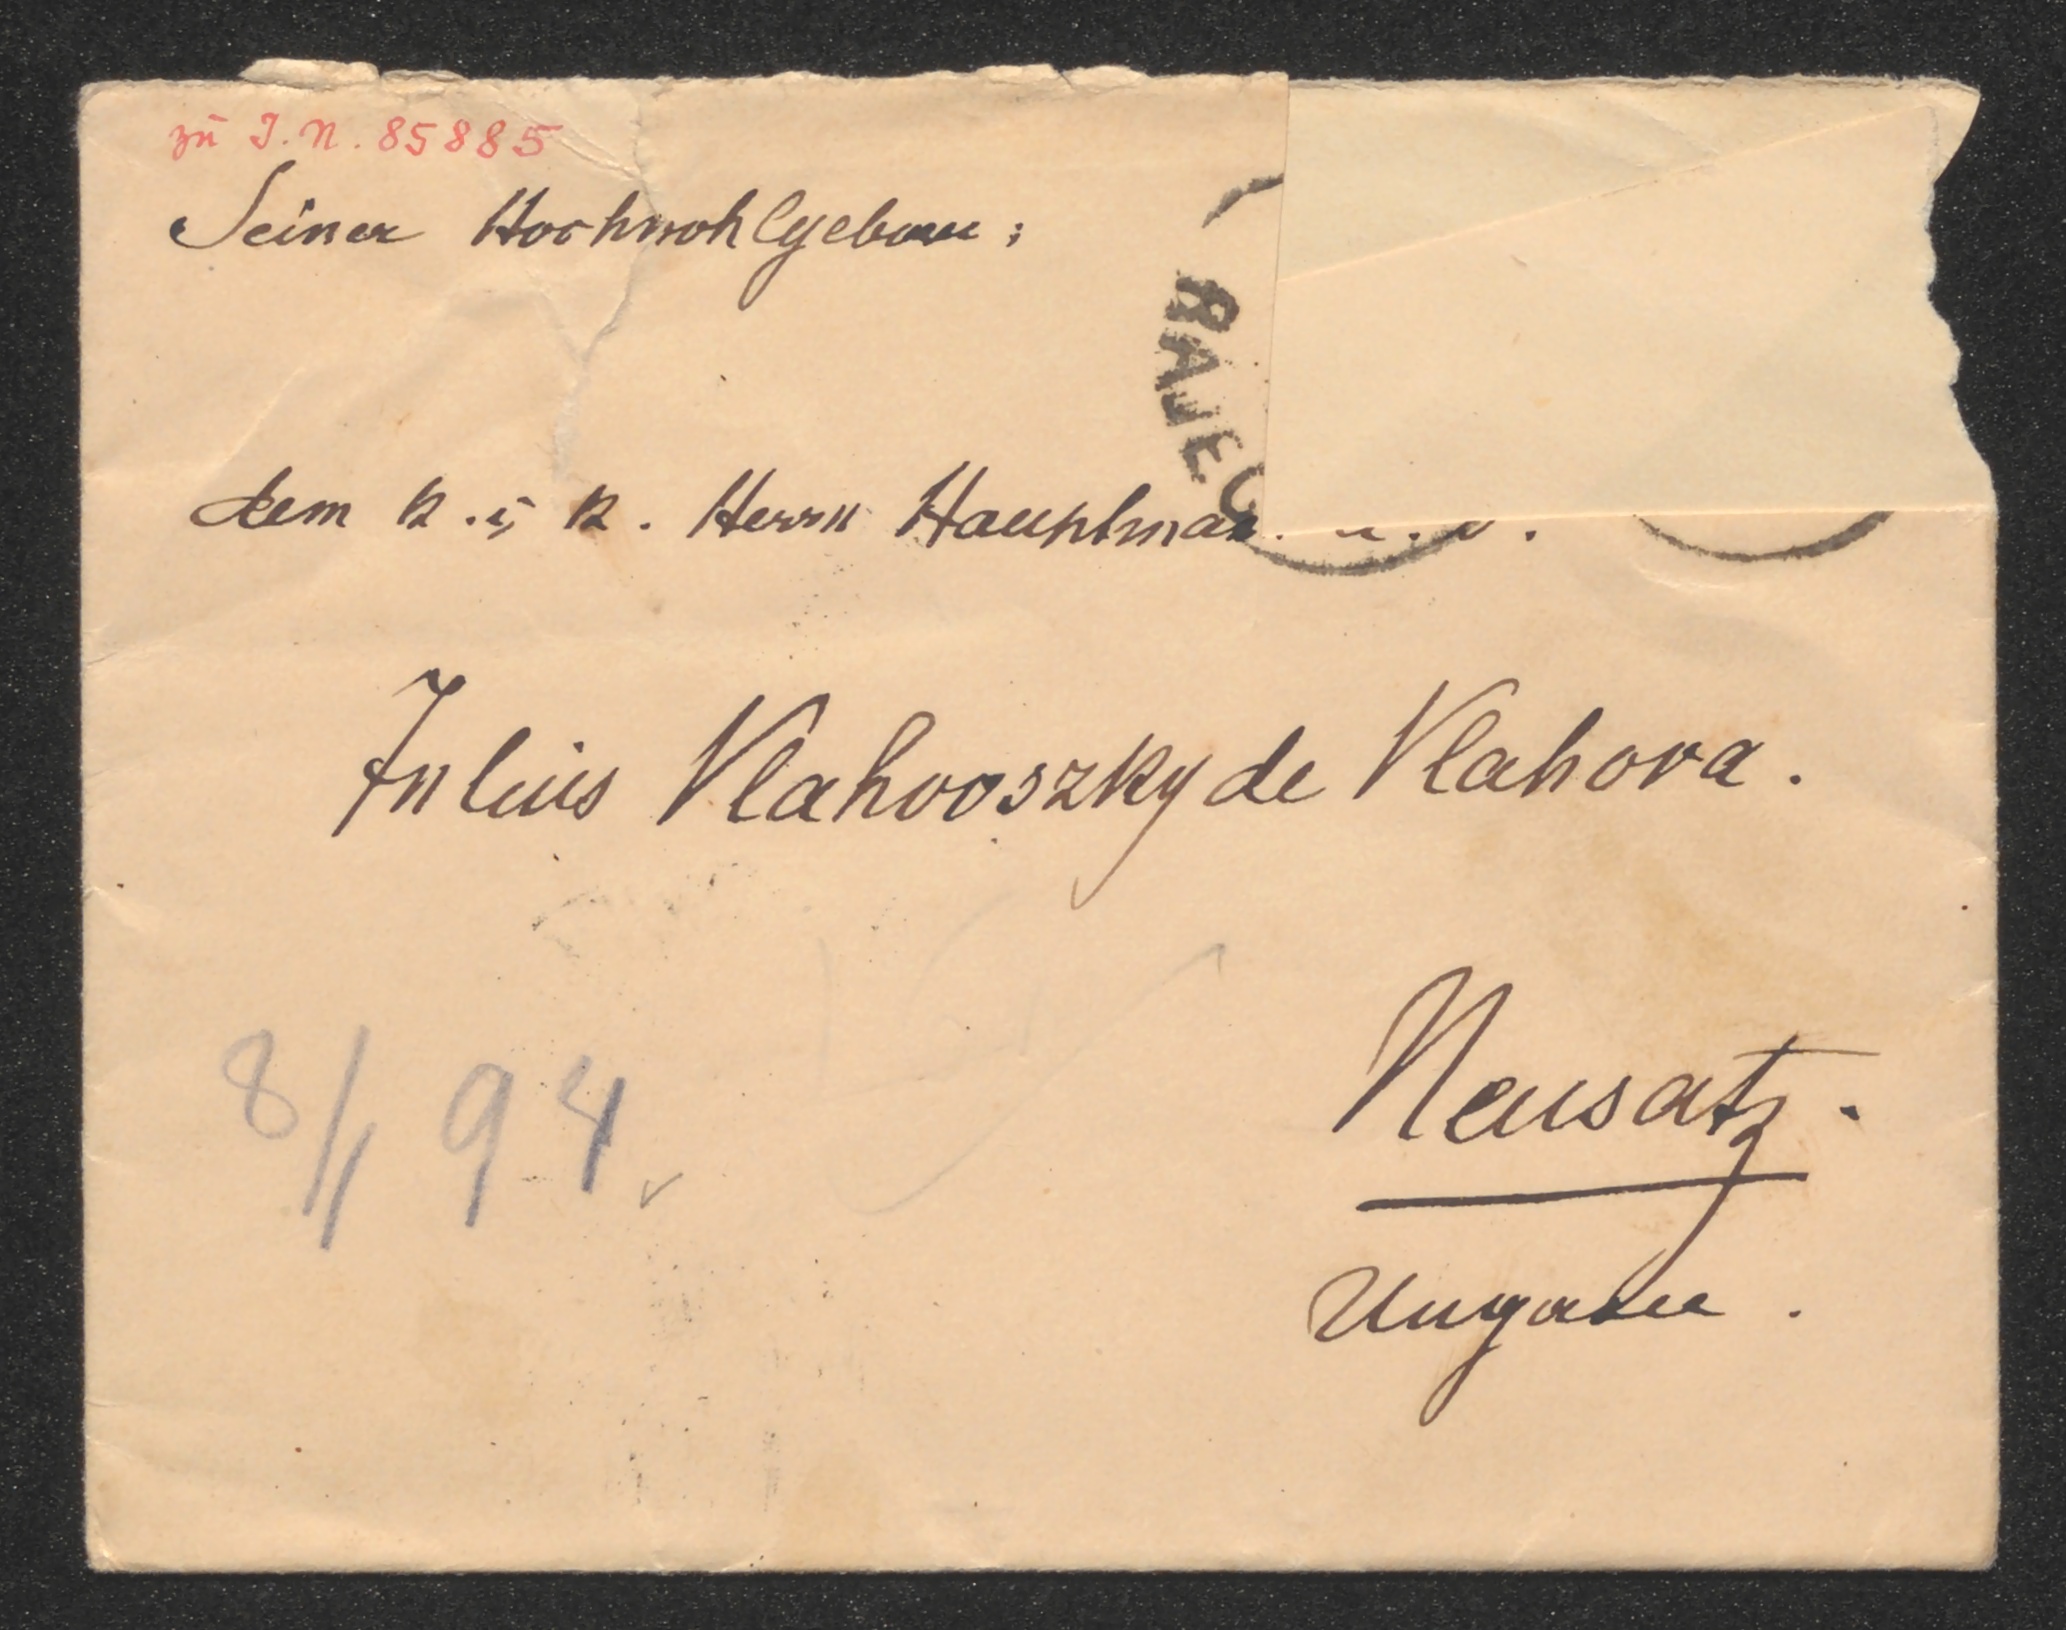 zu I. N. 85885
Seiner Hochwohlgeboren:
RAJEC
dem k. u. k. Herrn Hauptman.
Julius Vlahovszky de Vlahova.
8/I 94.
Neusatz.
Ungarn.